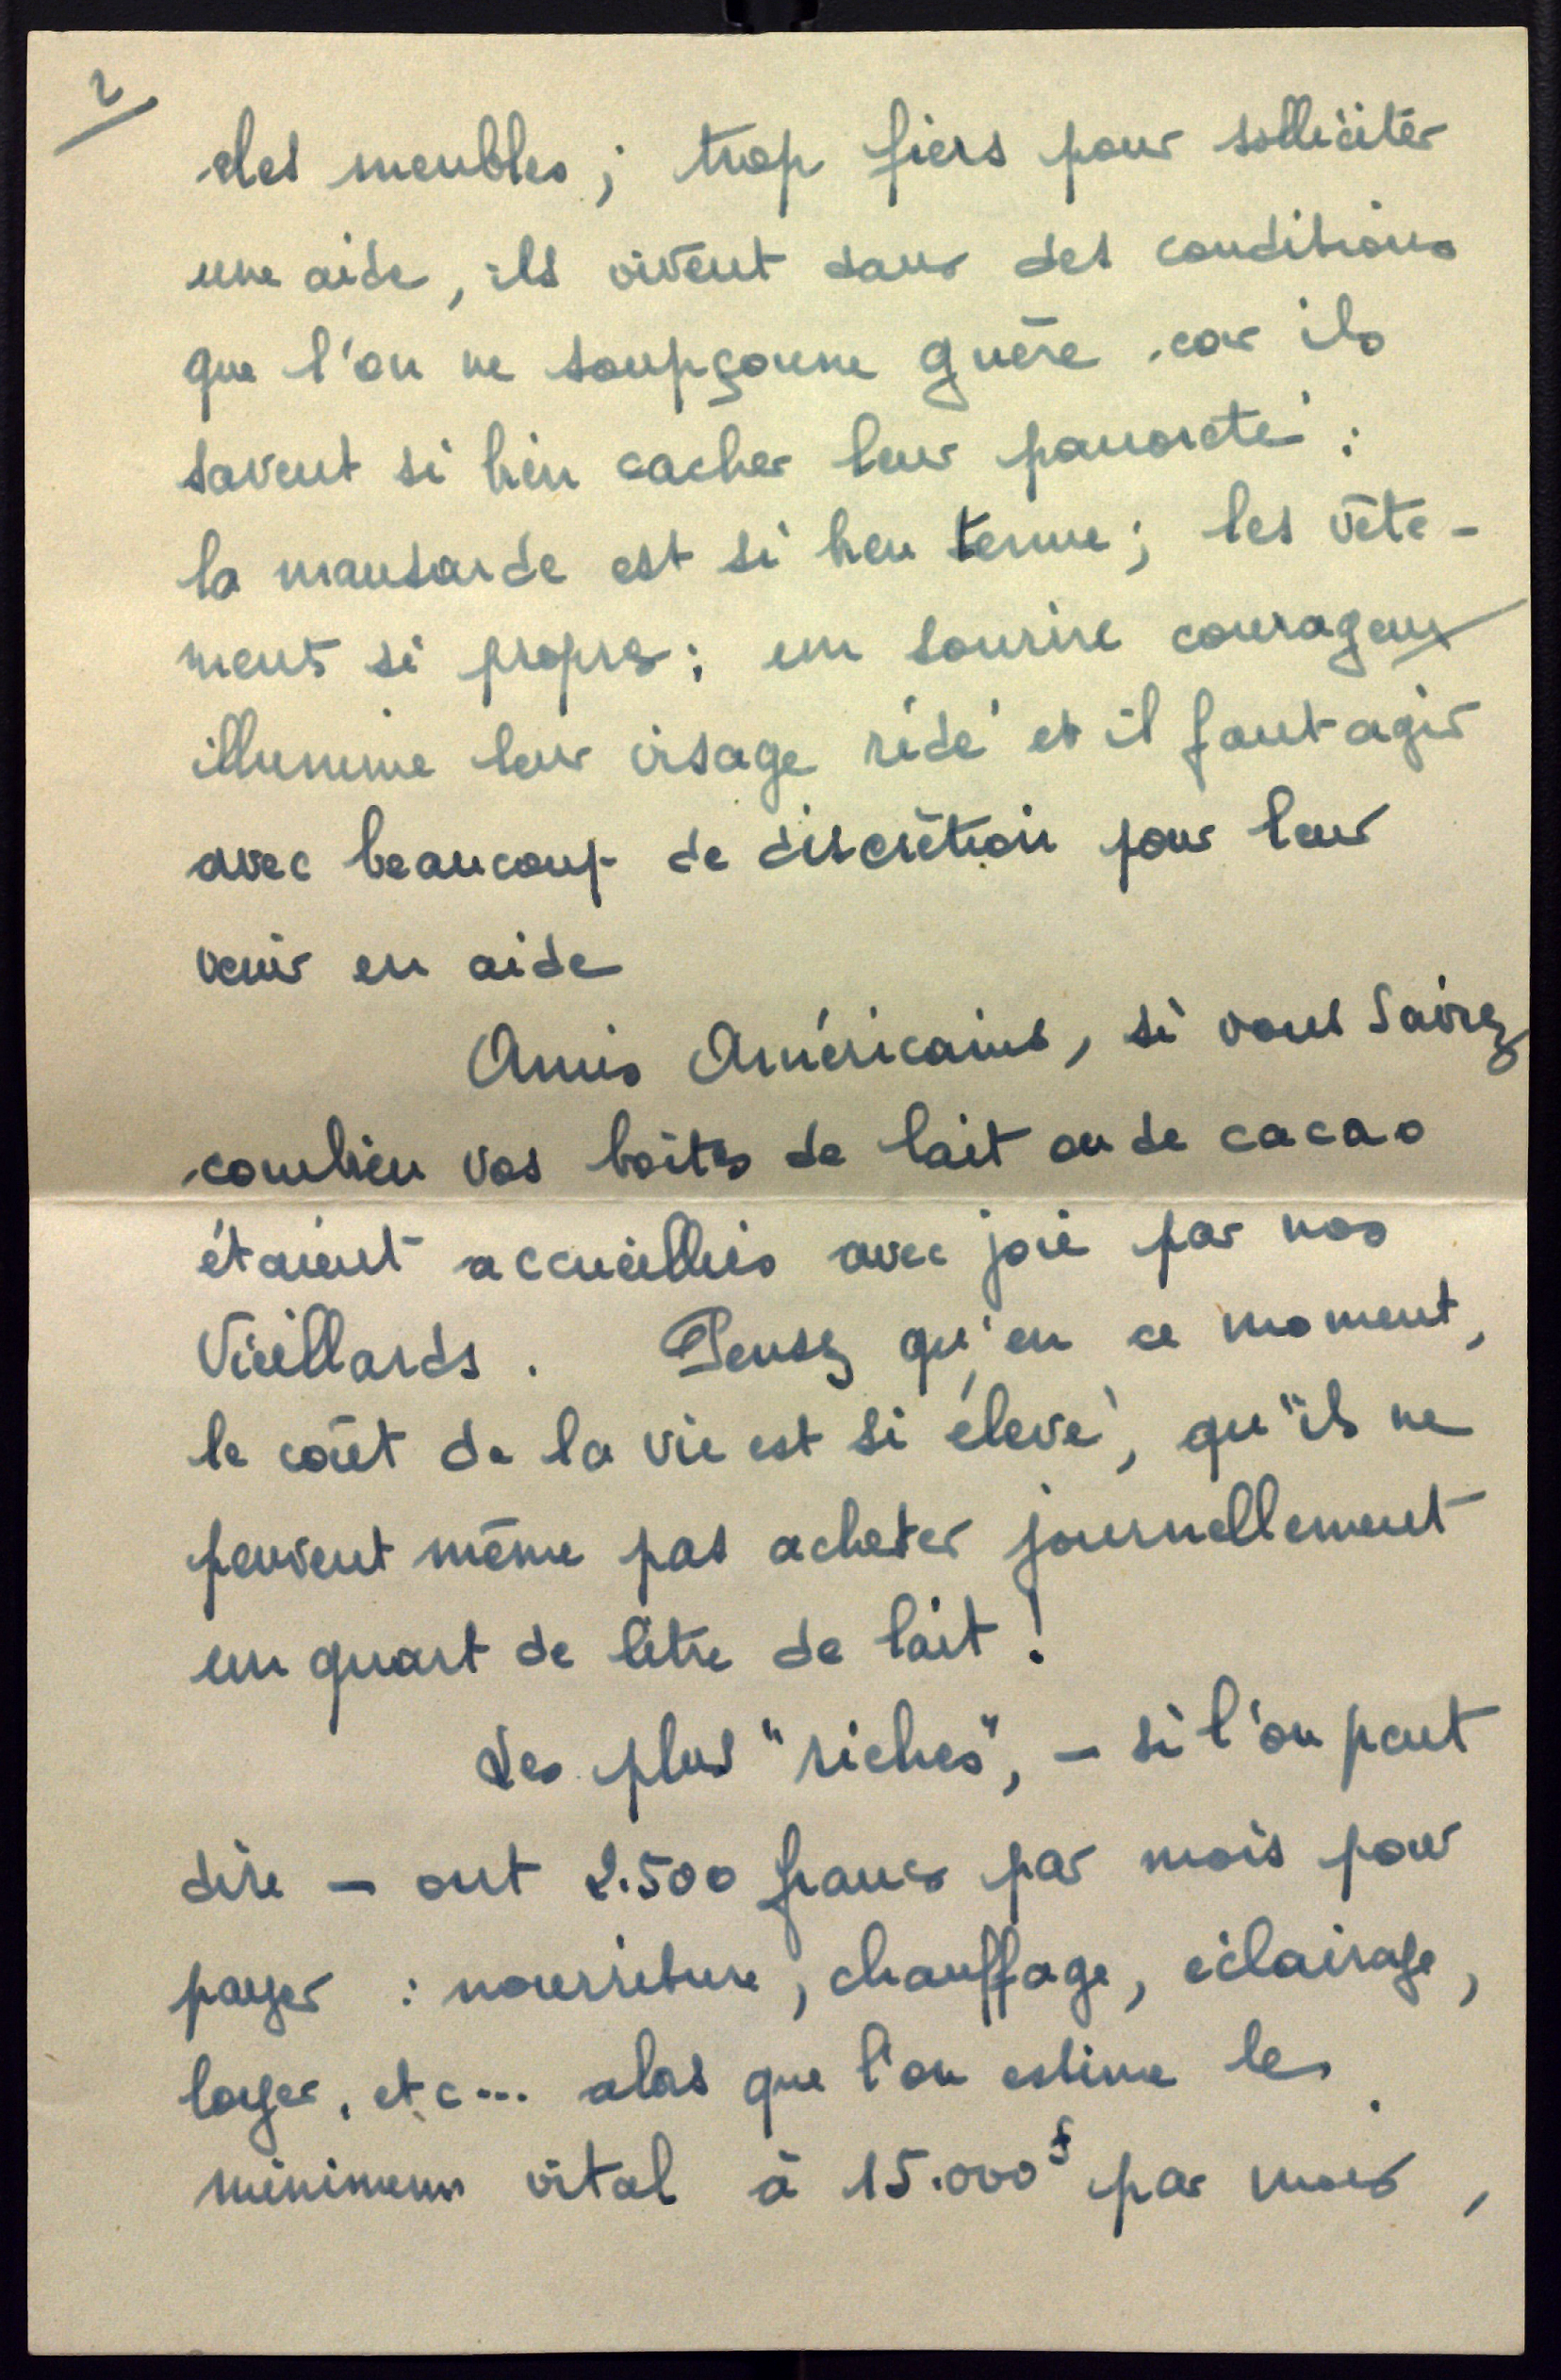 2
des meubles ; trop fiers pour solliciter
une aide, ils vivent dans des conditions
que l'on ne soupçonne guère car ils
savent si bien cacher leur pauvreté :
la mansarde est si bien tenue ; les vête-
ments si propres ; un sourire courageux
illumine leur visage ridé et il faut agir
avec beaucoup de discrétion pour leur
venir en aide
Amis Américains, si vous saviez
combien vos boîtes de lait ou de cacao
étaient accueillies avec joie par nos
Vieillards. Pensez qu'en ce moment,
le coût de la vie est si élevé, qu'ils ne
peuvent même pas acheter journellement
un quart de litre de lait !
Les plus "riches", - si l'on peut
dire - ont 2.500 francs par mois pour
payer : nourriture, chauffage, éclairage,
loyer, etc... alors que l'on estime le
minimum vital à 15.000 f par mois,